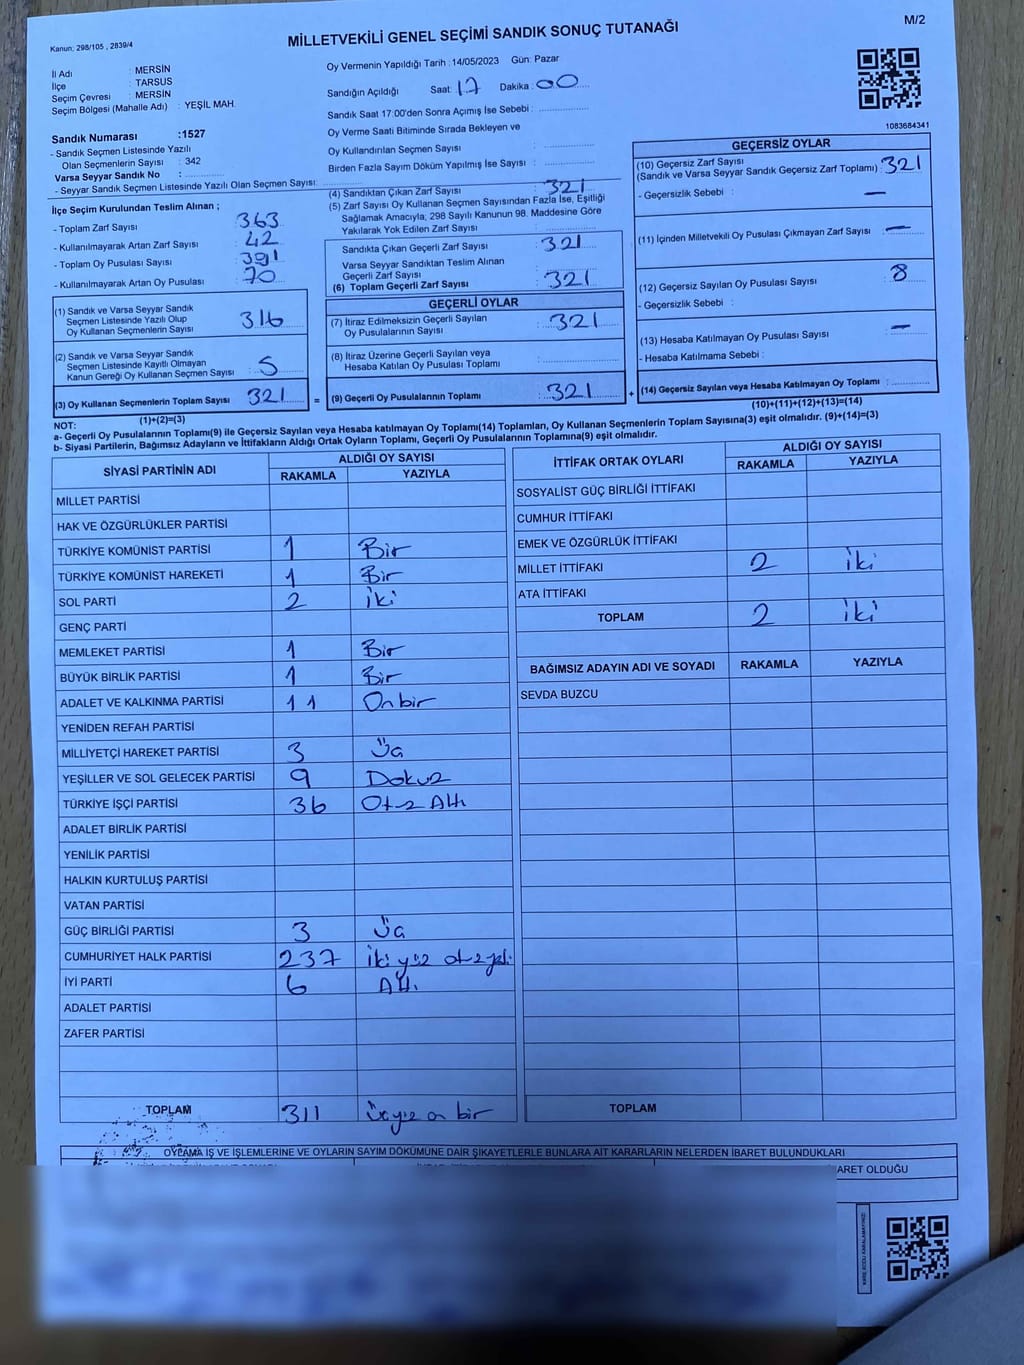 M/2
Kanun: 298/105 , 2839/4
MİLLETVEKİLİ GENEL SEÇİMİ SANDIK SONUÇ TUTANAĞI
İl Adı : MERSİN
İlçe : TARSUS
Seçim Çevresi : MERSİN
Seçim Bölgesi (Mahalle Adı) : YEŞİL MAH.
Sandık Numarası :1527
- Sandık Seçmen Listesinde Yazılı
Olan Seçmenlerin Sayısı : 342
Varsa Seyyar Sandık No :
- Seyyar Sandık Seçmen Listesinde Yazılı Olan Seçmen Sayısı:
Oy Vermenin Yapıldığı Tarih : 14/05/2023 Gün: Pazar
Sandığın Açıldığı Saat: 17 Dakika : 00
Sandık Saat 17:00'den Sonra Açımış İse Sebebi :
Oy Verme Saati Bitiminde Sırada Bekleyen ve
Oy Kullandırılan Seçmen Sayısı :
Birden Fazla Sayım Döküm Yapılmış İse Sayısı :
1083684341
İlçe Seçim Kurulundan Teslim Alınan ;
- Toplam Zarf Sayısı : 363
- Kullanılmayarak Artan Zarf Sayısı : 42
- Toplam Oy Pusulası Sayısı : 391
- Kullanılmayarak Artan Oy Pusulası : 70
(1) Sandık ve Varsa Seyyar Sandık
Seçmen Listesinde Yazılı Olup
Oy Kullanan Seçmenlerin Sayısı : 316
(2) Sandık ve Varsa Seyyar Sandık
Seçmen Listesinde Kayıtlı Olmayan
Kanun Gereği Oy Kullanan Seçmen Sayısı : 5
(3) Oy Kullanan Seçmenlerin Toplam Sayısı : 321
(1)+(2)=(3)
(4) Sandıktan Çıkan Zarf Sayısı : 321
(5) Zarf Sayısı Oy Kullanan Seçmen Sayısından Fazla İse, Eşitliği
Sağlamak Amacıyla; 298 Sayılı Kanunun 98. Maddesine Göre
Yakılarak Yok Edilen Zarf Sayısı :
Sandıkta Çıkan Geçerli Zarf Sayısı : 321
Varsa Seyyar Sandıktan Teslim Alınan
Geçerli Zarf Sayısı :
(6) Toplam Geçerli Zarf Sayısı : 321
GEÇERLİ OYLAR
(7) İtiraz Edilmeksizin Geçerli Sayılan
Oy Pusulalarının Sayısı : 321
(8) İtiraz Üzerine Geçerli Sayılan veya
Hesaba Katılan Oy Pusulası Toplamı :
= (9) Geçerli Oy Pusulalarının Toplamı : 321 +
GEÇERSİZ OYLAR
(10) Geçersiz Zarf Sayısı
(Sandık ve Varsa Seyyar Sandık Geçersiz Zarf Toplamı) : 321
- Geçersizlik Sebebi : —
(11) İçinden Milletvekili Oy Pusulası Çıkmayan Zarf Sayısı : —
(12) Geçersiz Sayılan Oy Pusulası Sayısı : 8
- Geçersizlik Sebebi :
(13) Hesaba Katılmayan Oy Pusulası Sayısı : —
- Hesaba Katılmama Sebebi :
(14) Geçersiz Sayılan veya Hesaba Katılmayan Oy Toplamı :
(10)+(11)+(12)+(13)=(14)
NOT:
a- Geçerli Oy Pusulalarının Toplamı(9) ile Geçersiz Sayılan veya Hesaba katılmayan Oy Toplamı(14) Toplamları, Oy Kullanan Seçmenlerin Toplam Sayısına(3) eşit olmalıdır. (9)+(14)=(3)
b- Siyasi Partilerin, Bağımsız Adayların ve İttifakların Aldığı Ortak Oyların Toplamı, Geçerli Oy Pusulalarının Toplamına(9) eşit olmalıdır.
SİYASİ PARTİNİN ADI ALDIĞI OY SAYISI
RAKAMLA YAZIYLA
MİLLET PARTİSİ
HAK VE ÖZGÜRLÜKLER PARTİSİ
TÜRKİYE KOMÜNİST PARTİSİ 1 Bir
TÜRKİYE KOMÜNİST HAREKETİ 1 Bir
SOL PARTİ 2 iki
GENÇ PARTİ
MEMLEKET PARTİSİ 1 Bir
BÜYÜK BİRLİK PARTİSİ 1 Bir
ADALET VE KALKINMA PARTİSİ 11 Onbir
YENİDEN REFAH PARTİSİ
MİLLİYETÇİ HAREKET PARTİSİ 3 Üç
YEŞİLLER VE SOL GELECEK PARTİSİ 9 Dokuz
TÜRKİYE İŞÇİ PARTİSİ 36 Otuz Altı
ADALET BİRLİK PARTİSİ
YENİLİK PARTİSİ
HALKIN KURTULUŞ PARTİSİ
VATAN PARTİSİ
GÜÇ BİRLİĞİ PARTİSİ 3 Üç
CUMHURİYET HALK PARTİSİ 237 iki yüz otuz yedi
İYİ PARTİ 6 Altı
ADALET PARTİSİ
ZAFER PARTİSİ
TOPLAM 311 üçyüz on bir
İTTİFAK ORTAK OYLARI ALDIĞI OY SAYISI
RAKAMLA YAZIYLA
SOSYALİST GÜÇ BİRLİĞİ İTTİFAKI
CUMHUR İTTİFAKI
EMEK VE ÖZGÜRLÜK İTTİFAKI
MİLLET İTTİFAKI 2 iki
ATA İTTİFAKI
TOPLAM 2 iki
BAĞIMSIZ ADAYIN ADI VE SOYADI RAKAMLA YAZIYLA
SEVDA BUZCU
TOPLAM
OYLAMA İŞ VE İŞLEMLERİNE VE OYLARIN SAYIM DÖKÜMÜNE DAİR ŞİKAYETLERLE BUNLARA AİT KARARLARIN NELERDEN İBARET BULUNDUKLARI
ARET OLDUĞU